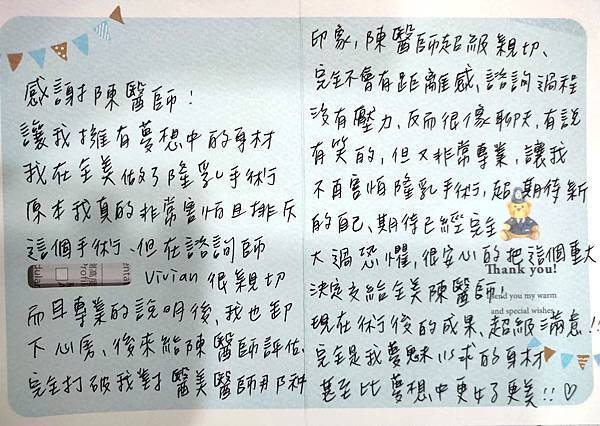 感謝陳醫師！
讓我擁有夢想中的身材
我在全美做了隆乳手術
原本我真的非常害怕且排斥
這個手術、但在諮詢師
Vivian 很親切
而且專業的說明後，我也卸
下心房、後來給陳醫師評估、
完全打破我對醫美醫師那種
印象，陳醫師超級親切、
完全不會有距離感，諮詢過程
沒有壓力、反而很像聊天，有說
有笑的，但又非常專業，讓我
不再害怕隆乳手術，超期待新
的自己、期待已經完全
大過恐懼，很安心的把這個重大
Thank you!
決定交給全美陳醫師!
Send you my warm
and special wishes
現在術後的成果、超級滿意!!
完全是我夢寐以求的身材
甚至比夢想中更好更美!!♡